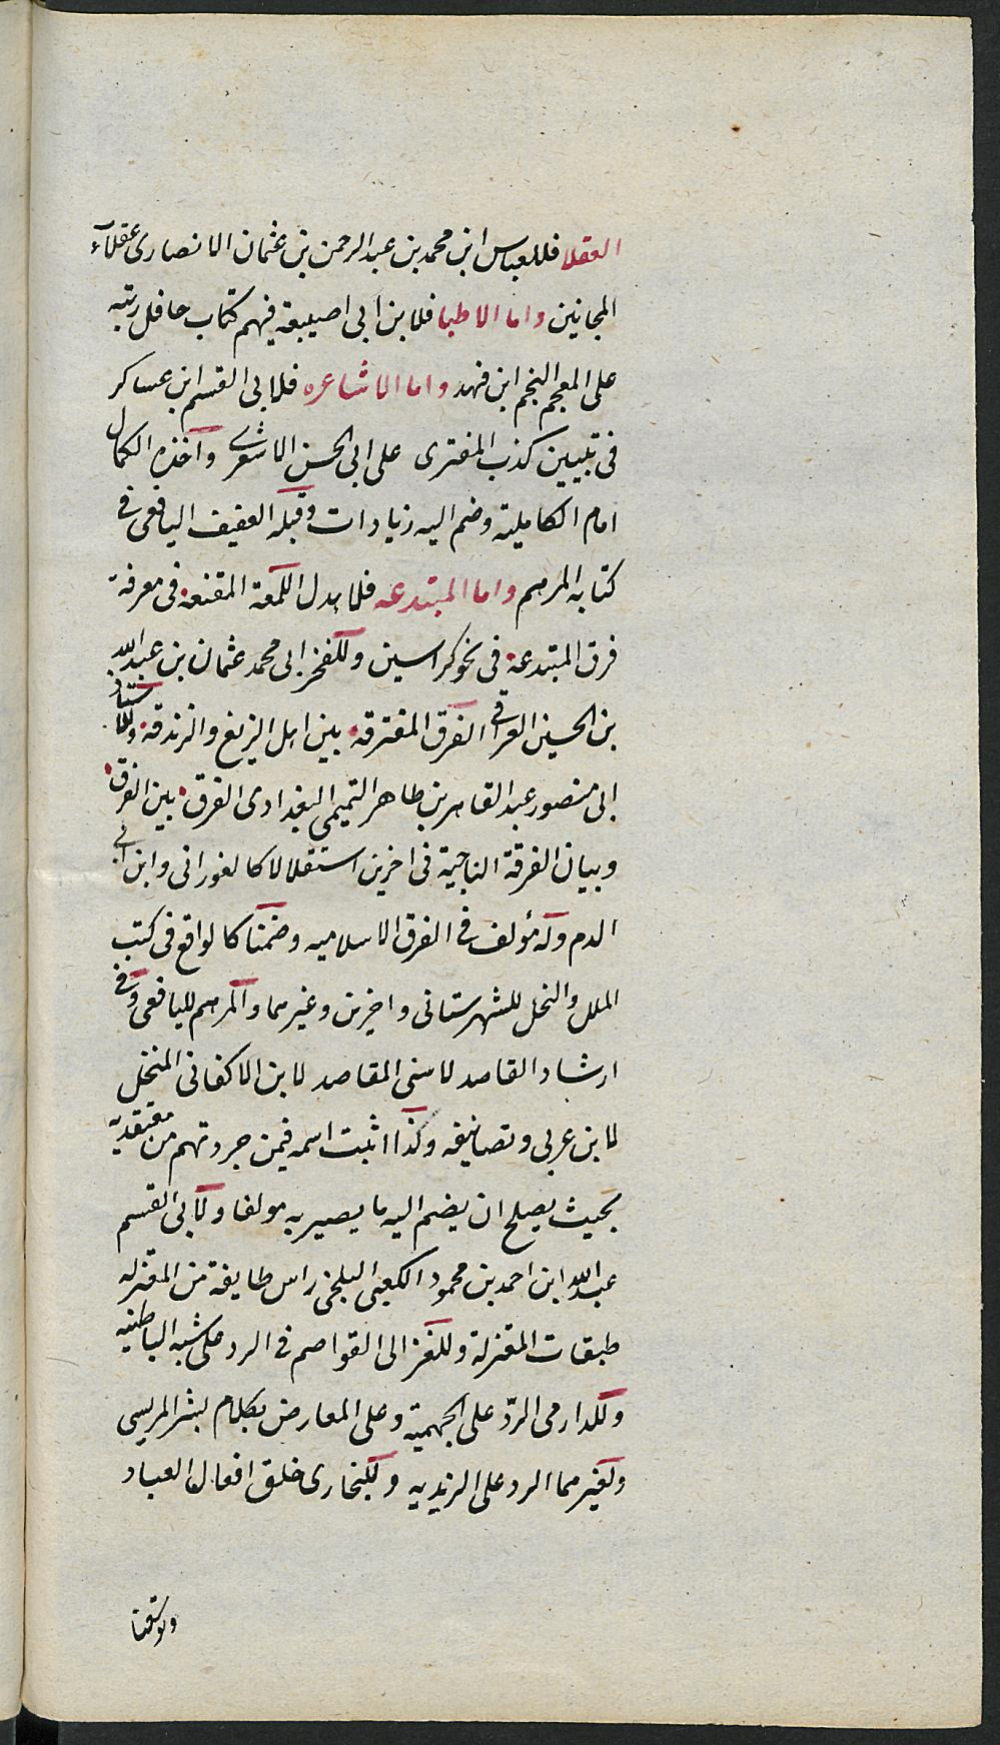 العقلا فللعباس ابن محمد بن عبد الرحمن بن عثمان الانصارى عقلآء
المجانين واما الاطبا فلابن ابى اصيبعة فيهم كتاب حافل رتبه
على المعجم النجم ابن فهد واما الاشاعره فلابى القسم ابن عساكر
فى تبيين كذب المفترى على ابى الحسن الاشعرى وآخذه الكمال
امام الكاملية وضم اليه زيادات وقبله العفيف اليافعى فى
كتابه المرهم واما المبتدعه فلا هدل اللمعة المقنعة فى معرفة
فرق المبتدعة فى نحو كراسين وللفخر ابى محمد عثمان بن عبد الله
بن الحسين العراقى الفرق المفترقة بين اهل الزيغ والزندقة وللاستاد
ابى منصور عبد القاهر بن طاهر التميمى البغدادى الفرق بين الفرق
وبيان الفرقة الناجية فى اخرين استقلالا كالفورانى وابن ابى
الدم وله مؤلف فى الفرق الاسلاميه وضمنا كالواقع فى كتب
الملل والنحل للشهرستانى واخرين وغيرهما والمرهم لليافعى وفى
ارشاد القاصد لاسنى المقاصد لابن الاكفانى المنخل
لابن عربى وتصانيفه وكذا اثبت اسمه فيمن جردتهم من معتقديه
بحيث يصلح ان يضم اليه ما يصير به مولفا ولابى القسم
عبد الله ابن احمد بن محمود الكعبى البلخى راس طايفة من المعتزله
طبقات المعتزلة وللغزالى القواصم فى الرد على شبه الباطنيه
وللدارمى الردّ على الجهمية وعلى المعارض بكلام بشر المريسى
ولغيرهما الرد على الزيديه وللبخارى خلق افعال العباد